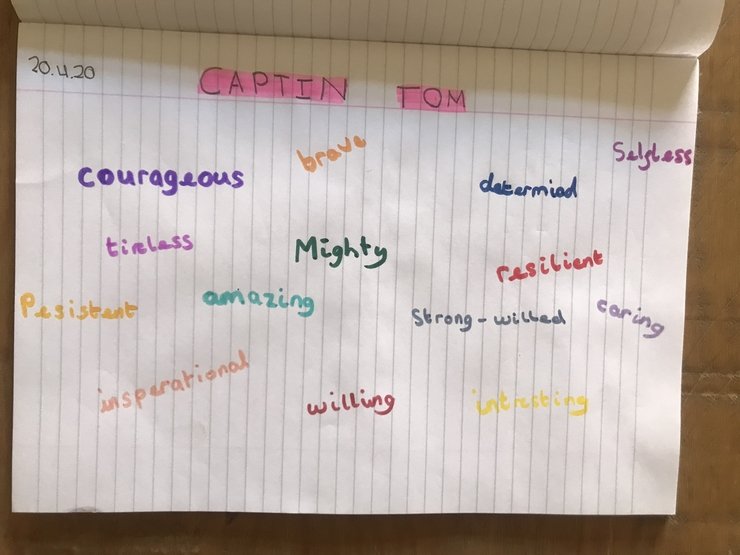 20.4.20
CAPTIN TOM
courageous
brave
determiod
Selfless
tireless
Mighty
resilient
Pesistent
amazing
Strong-willed
caring
insperational
willing
intresting